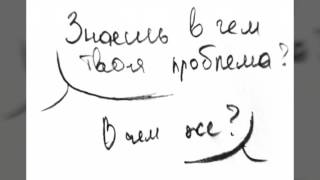 Знаешь в чем
твоя проблема?
В чем же?